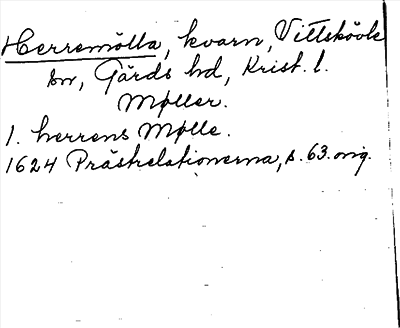 Herremölla, kvarn, Vittskövle
sn, Gärds hd, Krist. l.
Møller.
1. herrens Mølle.
1624 Prästrelationerna, s. 63. orig.